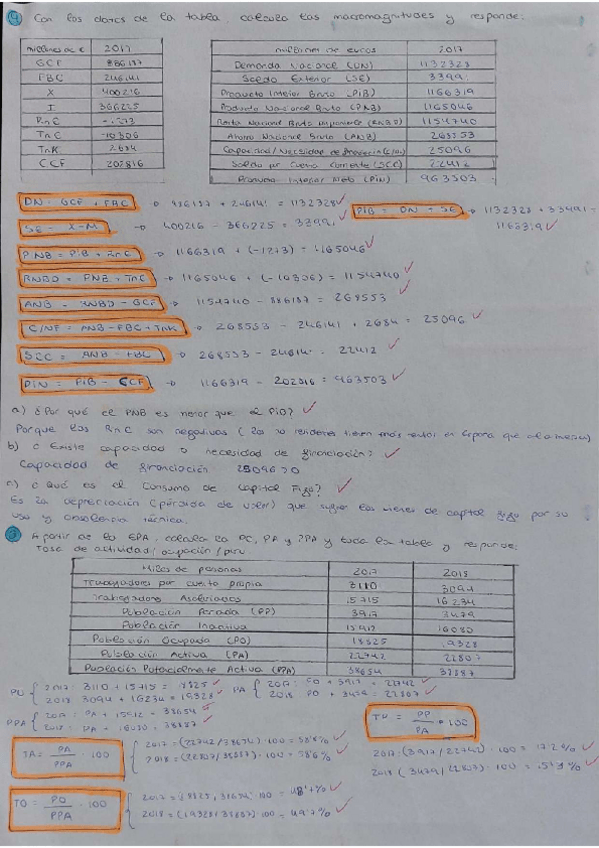 ④ Con los datos de la tabla, calcula las macromagnitudes y responde:
millones de € 2017
GCF 886187
FBC 246141
X 400216
I 366225
RnC -1273
TnC -10306
TnK 2684
CCF 202816
millones de euros 2017
Demanda Nacional (DN) 1132328
Saldo Exterior (SE) 33991
Producto Interior Bruto (PIB) 1166319
Producto Nacional Bruto (PNB) 1165046
Renta Nacional Bruta Disponible (RNBD) 1154740
Ahorro Nacional Bruto (ANB) 268553
Capacidad/Necesidad de financiación (C/NF) 25096
Saldo por Cuenta Corriente (SCC) 22412
Producto Interior Neto (PIN) 963503
DN = GCF + FBC → 886187 + 246141 = 1132328
PIB = DN + SE → 1132328 + 33991 =
1166319
SE = X-M → 400216 - 366225 = 33991
PNB = PIB + RnC → 1166319 + (-1273) = 1165046
RNBD = PNB + TnC → 1165046 + (-10306) = 1154740
ANB = RNBD - GCF → 1154740 - 886187 = 268553
C/NF = ANB - FBC + TnK → 268553 - 246141 + 2684 = 25096
SCC = ANB - FBC → 268553 - 246141 = 22412
PIN = PIB - CCF → 1166319 - 202816 = 963503
a) ¿Por qué el PNB es menor que el PIB?
Porque las RnC son negativas (los no residentes tienen más rentas en España que al
b) ¿Existe capacidad o necesidad de financiación?
Capacidad de financiación 25096 > 0
c) ¿Qué es el Consumo de Capital Fijo?
Es la depreciación (pérdida de valor) que sufren los bienes de capital fijo por su
uso y obsolencia técnica.
A partir de la EPA, calcula la PO, PA y PPA y toda la tabla y responde:
Tasa de actividad/ocupación/paro.
Miles de personas 2017 2018
Trabajadores por cuenta propia 3110 3094
Trabajadores Asalariados 15715 16234
Población Parada (PP) 3917 3479
Población Inactiva 15912 16080
Población Ocupada (PO) 18825 19328
Población Activa (PA) 22742 22807
Población Potencialmente Activa (PPA) 38654 38887
PO { 2017: 3110 + 15715 = 18825
2018: 3094 + 16234 = 19328
PA { 2017: PO + 3917 = 22742
2018: PO + 3479 = 22807
PPA { 2017: PA + 15912 = 38654
2018: PA + 16080 = 38887
TP = PP/PA · 100
TA = PA/PPA · 100
2017 = (22742/38654) · 100 = 58'8%
2018 = (22807/38887) · 100 = 58'6%
2017: (3917/22742) · 100 = 17'2%
2018: (3479/22807) · 100 =
TO = PO/PPA · 100
2017 = (18825/38654) · 100 = 48'7%
2018 = (19328/38887) · 100 = 49'7%